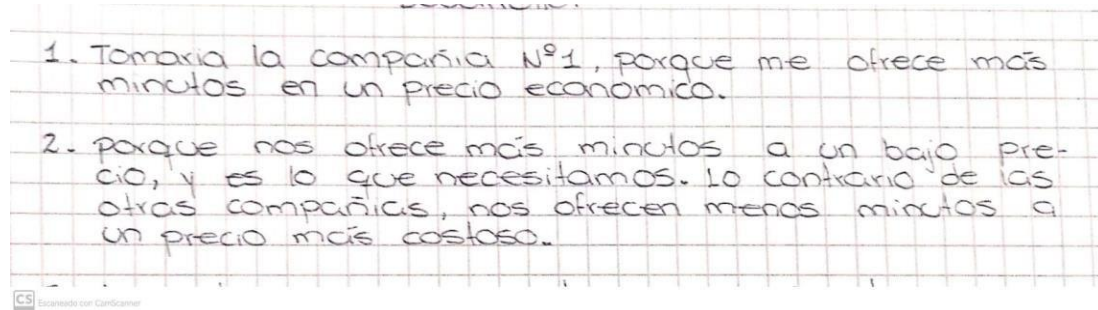 1. Tomaria la compañia Nº1, porque me ofrece más
minutos en un precio económico.
2. porque nos ofrece más minutos a un bajo pre-
cio, y es lo que necesitamos. Lo contrario de las
otras compañias, nos ofrecen menos minutos a
un precio más costoso.
CS Escaneado con CamScanner